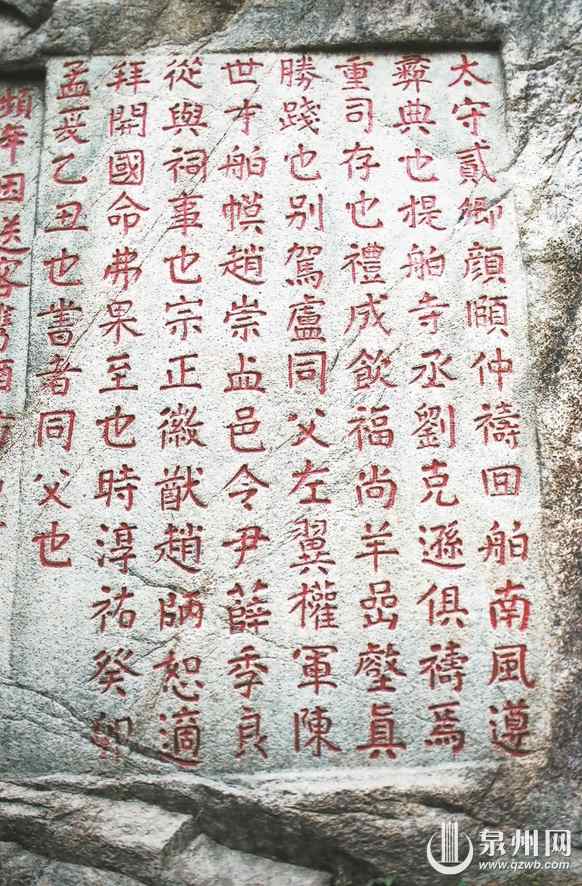 太守貳卿顏頤仲禱囬舶南風遵
彝典也提舶寺丞劉克遜俱禱焉
重司存也禮成飲福尚羊嵒壑真
勝踐也別駕盧同父左翼權軍陳
世才舶幙趙崇邑令尹薛季良
從與祠事也宗正徽猷趙師恕適
拜開國命弗果至也時淳祐癸卯
孟夏乙丑也書者同父也
頻年因送客
泉州网
www.qzwb.com